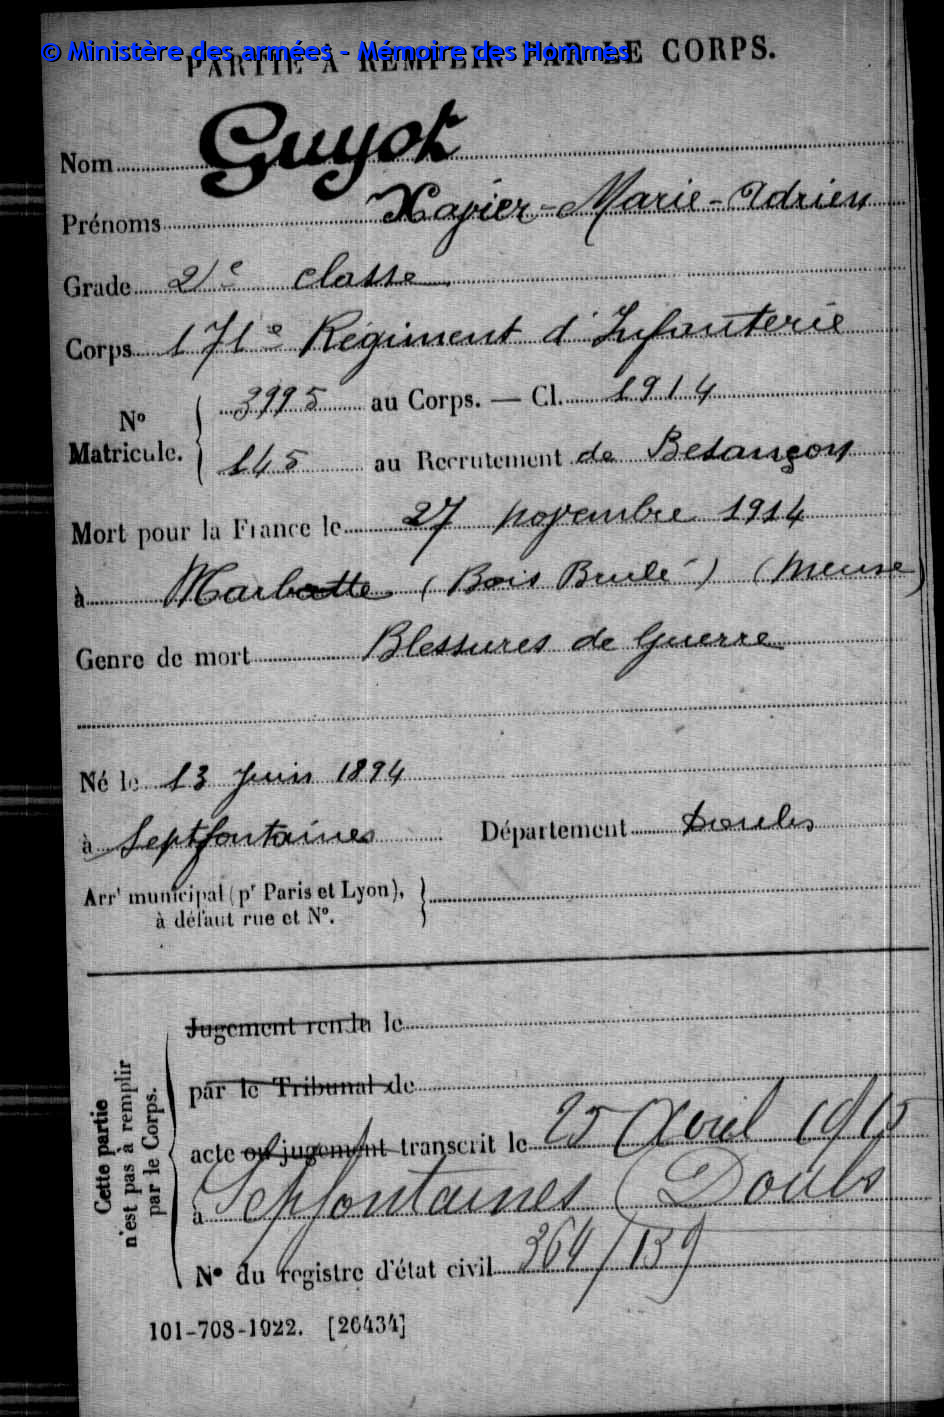 © Ministère des armées - Mémoire des Hommes
PARTIE À REMPLIR PAR LE CORPS.
Nom Guyot
Prénoms Xavier-Marie-Adrien
Grade 2e classe
Corps 171e Régiment d'Infanterie
No Matricule. { 3995 au Corps. — Cl. 1914
145 au Recrutement de Besançon
Mort pour la France le 27 novembre 1914
à Marbotte (Bois Brulé) (Meuse)
Genre de mort Blessures de Guerre
Né le 13 Juin 1894
à Septfontaines Département Doubs
Arrt municipal (pr Paris et Lyon), }
à défaut rue et No.
Cette partie
n'est pas à remplir
par le Corps.
Jugement rendu le
par le Tribunal de
acte ou jugement transcrit le 25 Avril 1915
à Sepfontaines (Doubs
No du registre d'état civil 364/139
101-708-1922. [26434]